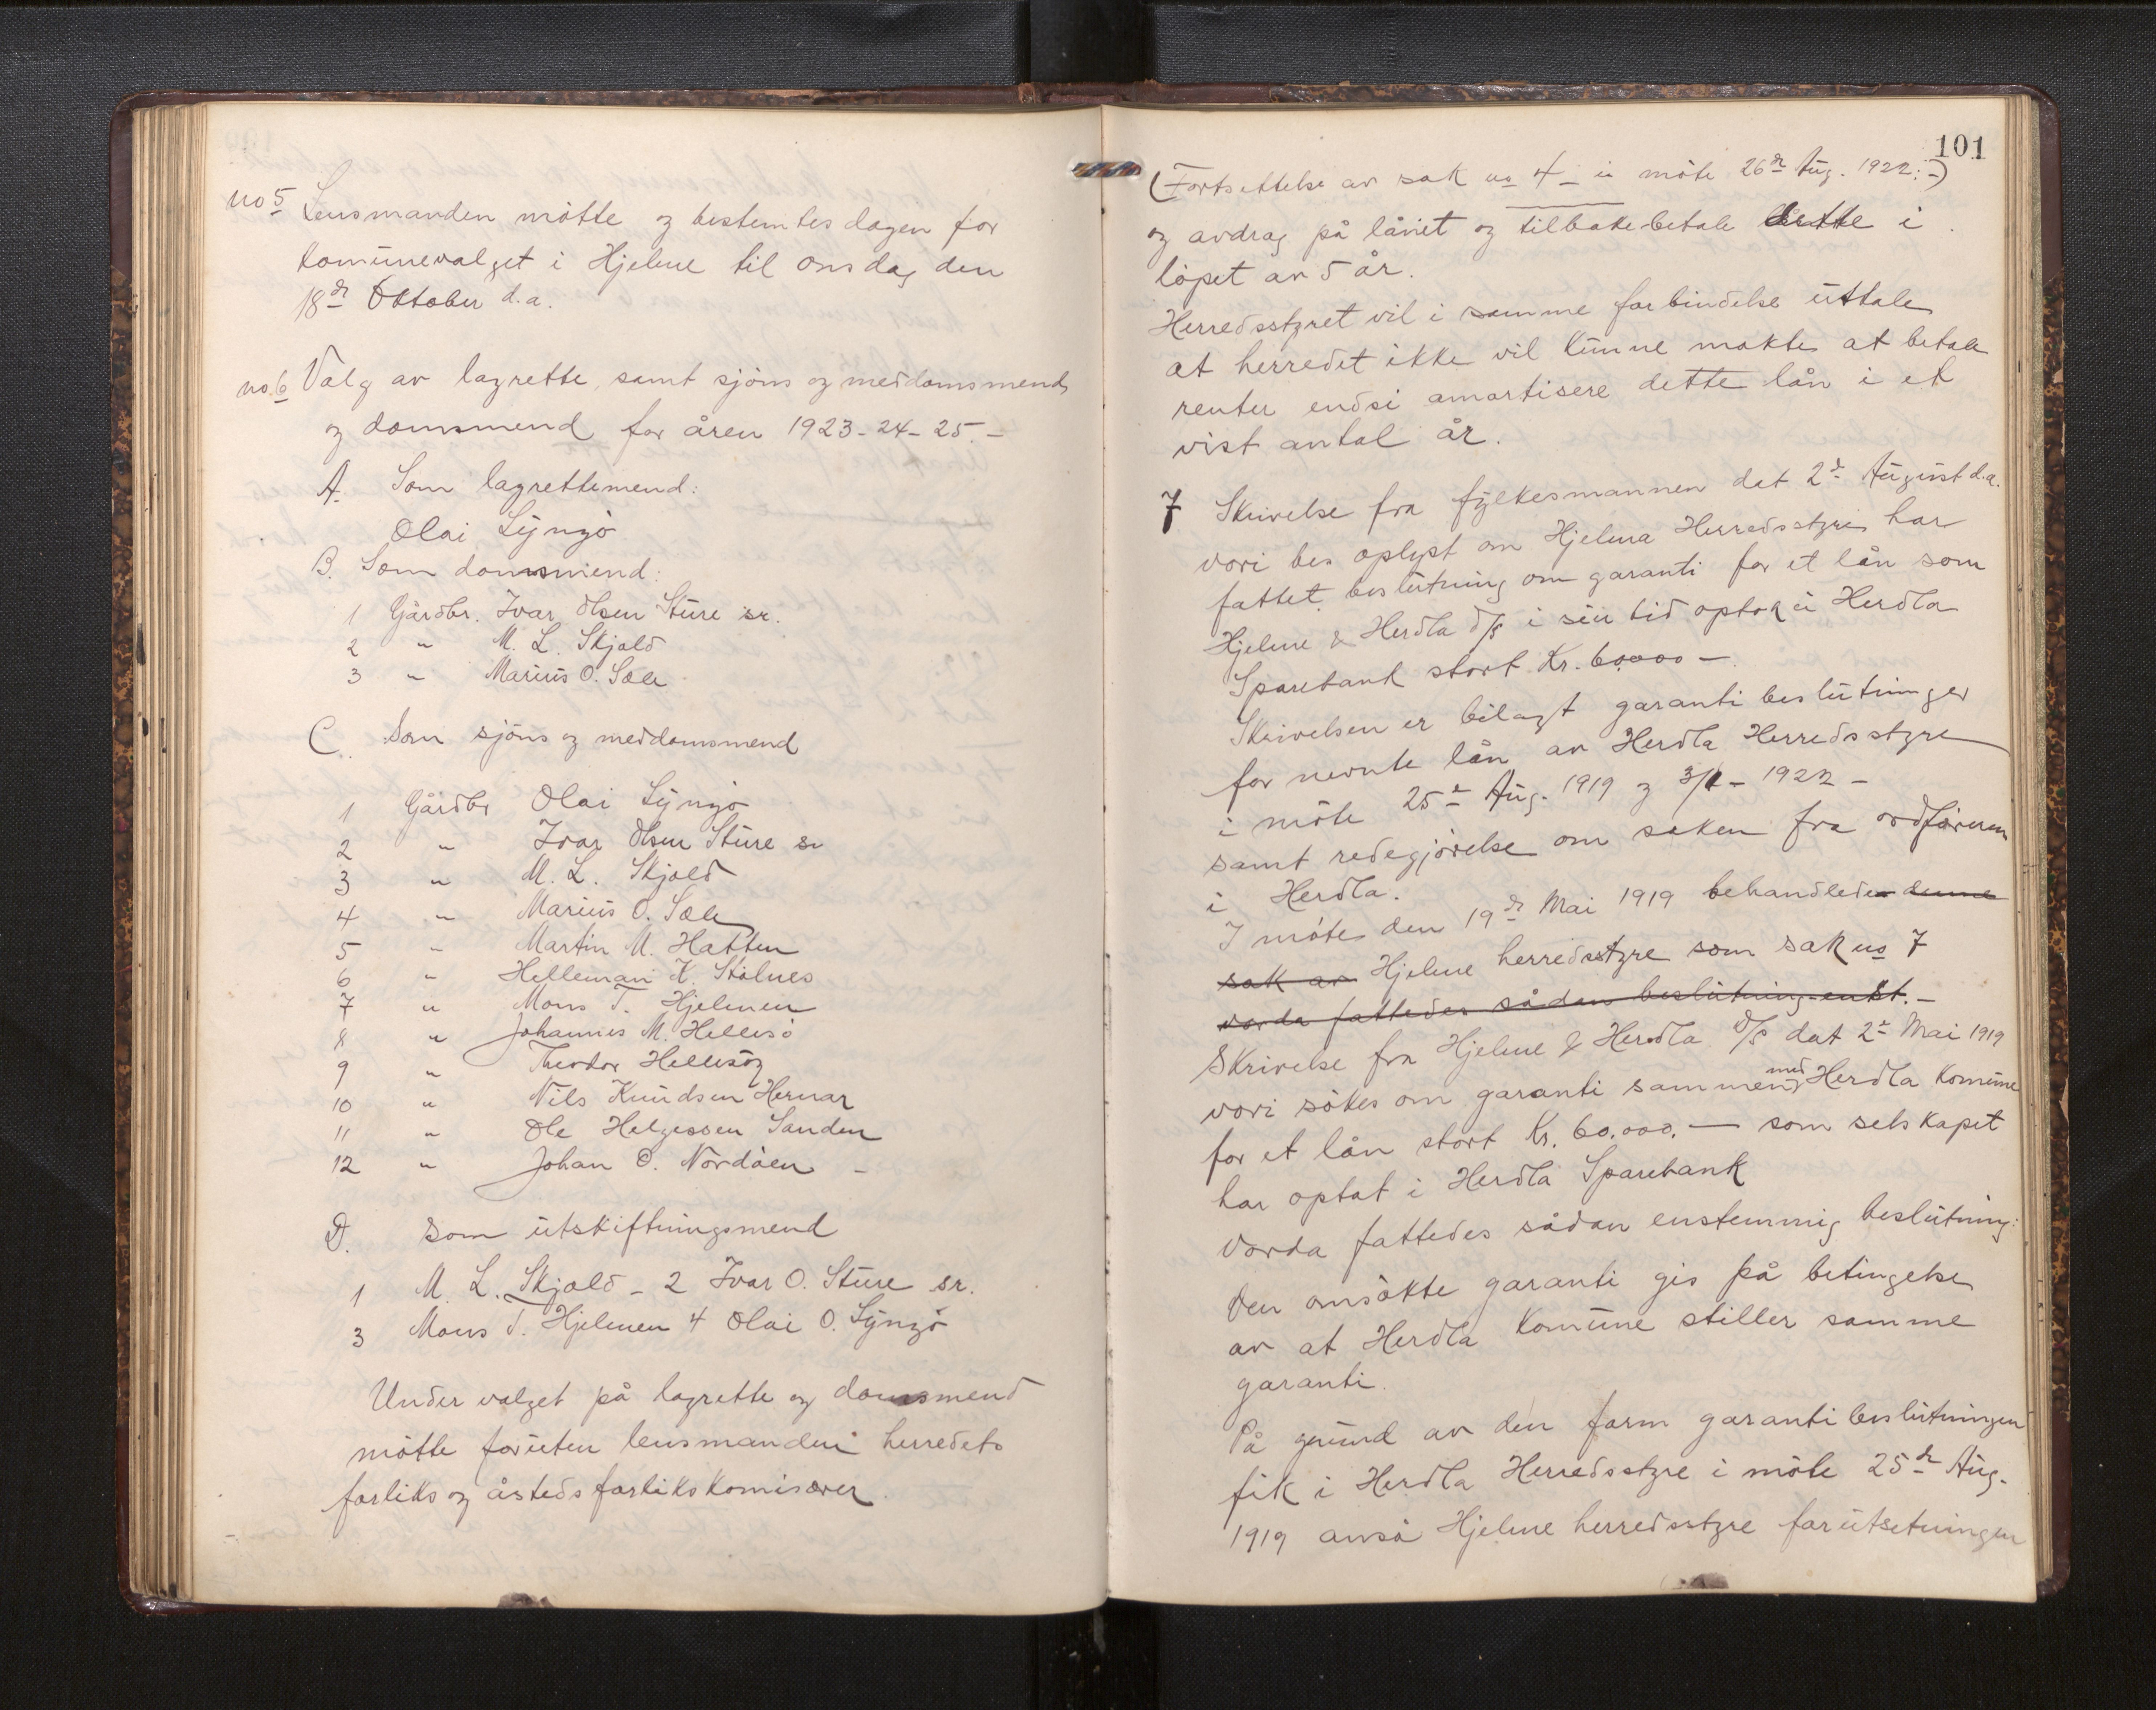 no 5 Lensmanden mötte og bestemtes dagen for
komünevalget i Hjelme til onsdag den
18de Oktober d.a.
no. 6 Valg av lagrette, samt sjöns og meddomsmend
og domsmend for åren 1923-24-25.-
A. Som lagrettemend:
Olai Lÿngö
B. Som domsmend:
1 Gårdbr. Ivar Olsen Stüre sr.
2 " M. L. Skjold
3 " Mariüs O. Sæle
C. Som sjöns og meddomsmend
1 Gårdbr Olai Lÿngö
2 " Ivar Olsen Stüre sr
3 " M. L. Skjold
4 " Mariüs O. Sæle
5 " Martin M. Hatten
6 " Helleman K. Stölnes
7 " Mons T. Hjelmen
8 " Johannes M. Hellesö
9 " Theodor Hellesöy
10 " Nils Knüdsen Hernar
11 " Ole Helgessen Sanden
12 " Johan O. Nordöen -
D. som ütskiftningsmend
1 M. L. Skjold - 2 Ivar O. Stüre sr.
3 Mons T. Hjelmen 4 Olai O. Lÿngö
Under valget på lagrette og domsmend
mötte forüten lensmanden herredets
forliks og åstedsforlikskomisærer.
101
(Fortsettelse av sak no 4 - i möte 26de Aüg. 1922:-)
og avdrag på lånet og tilbake-betale dette i
löpet av 5 år.
Herredsstyret vil i samme forbindelse üttale
at herredet ikke vil künne makte at betale
renter endsi amortisere dette lån i et
vist antal år.
7 Skrivelse fra fÿlkesmannen dat 2de Aügüst d.a.
vori bes oplyst om Hjelma Herredsstyre har
fattet beslütning om garanti for et lån som
Hjelme & Herdla D/S i sin tid optok i Herdla
Sparebank stort Kr. 60.000 -
Skrivelsen er bilagt garanti beslütninger
for nevnte lån av Herdla Herredsstyre
i möte 25de Aüg. 1919 og 3/1 - 1922 -
samt redegjörelse om saken fra ordföreren
i Herdla.
I möte den 19de Mai 1919 behandledes denne
sak av Hjelme herredsstyre som sak no 7
vorda fattedes sådan beslütning enst. -
Skrivelse fra Hjelme & Herdla D/S dat 2de Mai 1919
vori sökes om garanti sammen med Herdla Komüne
for et lån stort Kr. 60.000. - som selskapet
har optat i Herdla Sparebank
Vorda fattedes sådan enstemmig beslütning:
Den omsökte garanti gis på betingelse
av at Herdla Komüne stiller samme
garanti.
På gründ av den form garantibeslütningen
fik i Herdla Herredsstyre i möte 25de Aüg.
1919 anså Hjelme herredsstyre forütsetningen